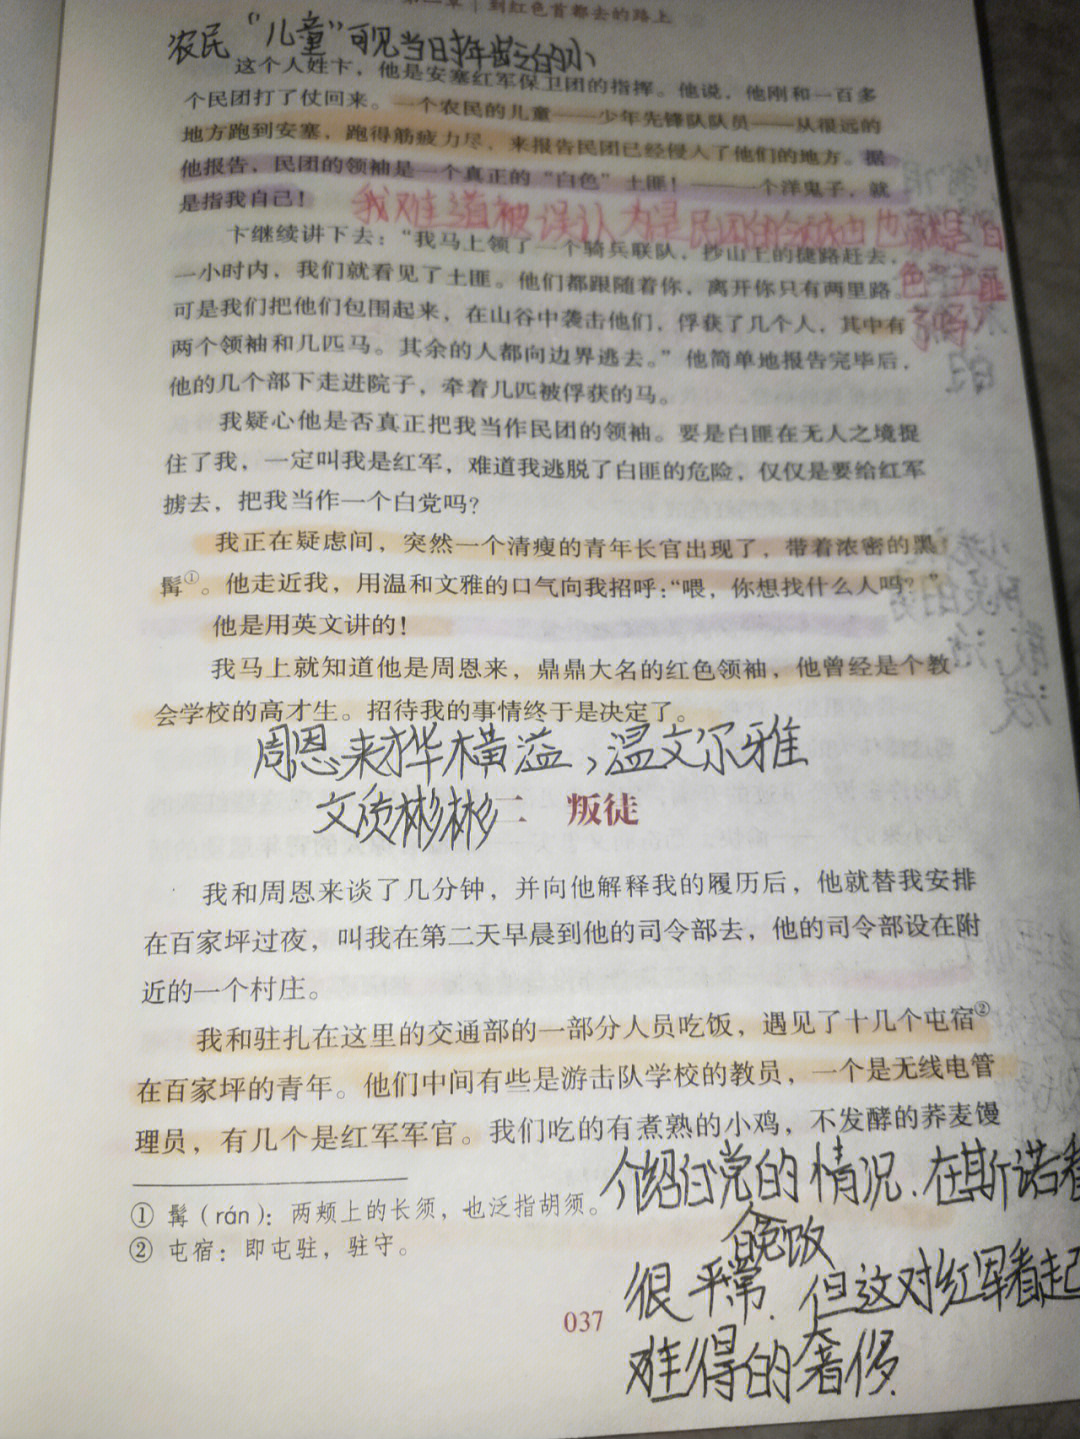 到红色首都去的路上
农民“儿童”可见当时年龄之的小
这个人姓卞，他是安塞红军保卫团的指挥。他说，他刚和一百多
个民团打了仗回来。一个农民的儿童——少年先锋队队员——从很远的
地方跑到安塞，跑得筋疲力尽，来报告民团已经侵入了他们的地方。据
他报告，民团的领袖是一个真正的“白色”土匪！——一个洋鬼子，就
是指我自己！
我难道被误认为是民团的领袖也就是白
色土匪
了吗
卞继续讲下去：“我马上领了一个骑兵联队，抄山上的捷路赶去，
一小时内，我们就看见了土匪。他们都跟随着你，离开你只有两里路。
可是我们把他们包围起来，在山谷中袭击他们，俘获了几个人，其中有
两个领袖和几匹马。其余的人都向边界逃去。”他简单地报告完毕后，
他的几个部下走进院子，牵着几匹被俘获的马。
我疑心他是否真正把我当作民团的领袖。要是白匪在无人之境捉
住了我，一定叫我是红军，难道我逃脱了白匪的危险，仅仅是要给红军
掳去，把我当作一个白党吗？
我正在疑虑间，突然一个清瘦的青年长官出现了，带着浓密的黑
髯①。他走近我，用温和文雅的口气向我招呼：“喂，你想找什么人吗？”
他是用英文讲的！
我马上就知道他是周恩来，鼎鼎大名的红色领袖，他曾经是个教
会学校的高才生。招待我的事情终于是决定了。
周恩来才华横溢，温文尔雅
文质彬彬
二 叛徒
我和周恩来谈了几分钟，并向他解释我的履历后，他就替我安排
在百家坪过夜，叫我在第二天早晨到他的司令部去，他的司令部设在附
近的一个村庄。
我和驻扎在这里的交通部的一部分人员吃饭，遇见了十几个屯宿②
在百家坪的青年。他们中间有些是游击队学校的教员，一个是无线电管
理员，有几个是红军军官。我们吃的有煮熟的小鸡，不发酵的荞麦馒
介绍白党的情况.在斯诺看
晚饭
很平常.但这对红军看起
难得的奢侈.
① 髯（rán）：两颊上的长须，也泛指胡须。
② 屯宿：即屯驻，驻守。
037